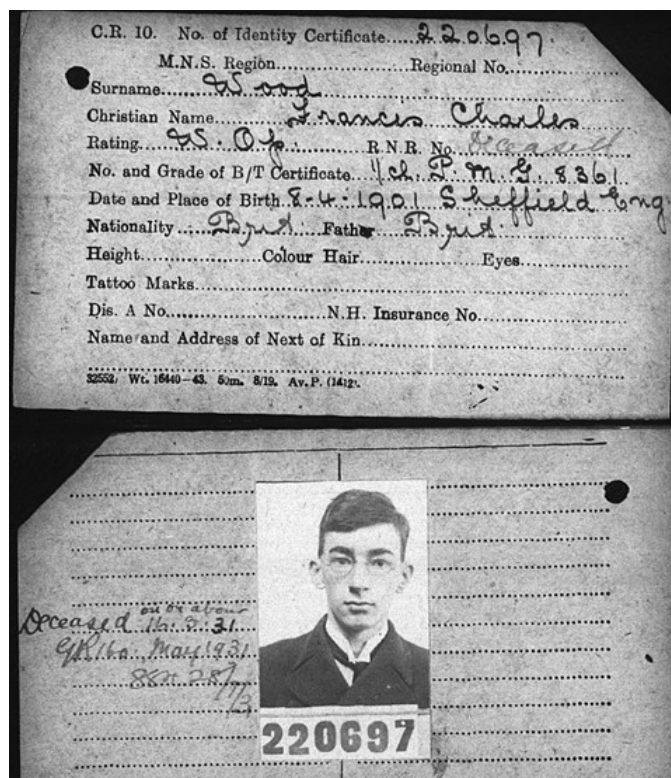 C.R. 10. No. of Identity Certificate.....220697
M.N.S. Region....................Regional No..................
Surname.... Wood
Christian Name..... Francis Charles
Rating.... W. Op. R.N.R. No. Deceased
No. and Grade of B/T Certificate 1/ch. P.M.G. 8361
Date and Place of Birth 8-4-1901 Sheffield Eng
Nationality .. Brit. Father Brit.
Height................Colour Hair................Eyes................
Tattoo Marks................
Dis. A No................N.H. Insurance No................
Name and Address of Next of Kin................
32552. Wt. 16440-43. 50m. 8/19. Av. P. (1412).
on or about
Deceased 16.3.31
May 1931
220697